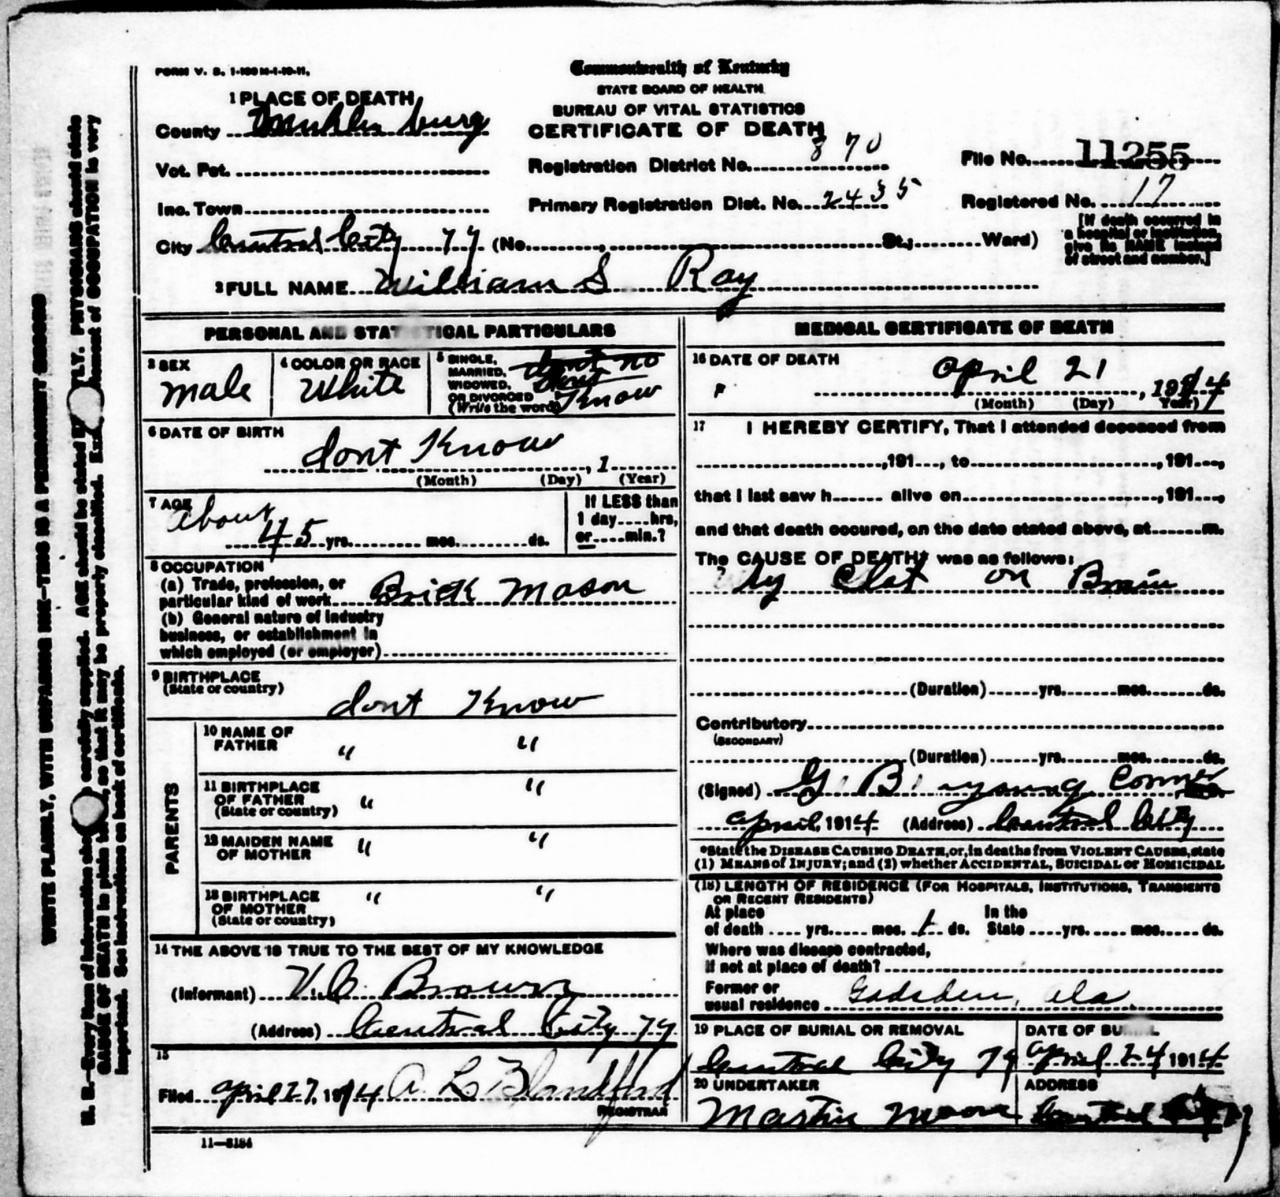 FORM V. S. 1-100M-1-10-11.
Commonwealth of Kentucky
STATE BOARD OF HEALTH
BUREAU OF VITAL STATISTICS
CERTIFICATE OF DEATH
1 PLACE OF DEATH
County Muhlenburg
Vot. Pct.
Inc. Town
City Central City Ky (No. , St.; Ward)
Registration District No. 870
Primary Registration Dist. No. 2435
File No. 11255
Registered No. 17
[If death occurred in
a hospital or institution,
give its NAME instead
of street and number.]
2 FULL NAME William S Ray
PERSONAL AND STATISTICAL PARTICULARS
3 SEX
male
4 COLOR OR RACE
White
5 SINGLE,
MARRIED,
WIDOWED,
OR DIVORCED
(Write the word)
dont no
dont
Know
6 DATE OF BIRTH
dont Know , 1
(Month) (Day) (Year)
7 AGE
About
45 yrs. mos. ds.
If LESS than
1 day....hrs,
or....min.?
8 OCCUPATION
(a) Trade, profession, or
particular kind of work Brick Mason
(b) General nature of industry
business, or establishment in
which employed (or employer)
9 BIRTHPLACE
(State or country)
dont Know
PARENTS
10 NAME OF
FATHER " "
11 BIRTHPLACE
OF FATHER " "
(State or country)
12 MAIDEN NAME
OF MOTHER " "
13 BIRTHPLACE
OF MOTHER " "
(State or country)
14 THE ABOVE IS TRUE TO THE BEST OF MY KNOWLEDGE
(Informant) V.C. Brown
(Address) Central City Ky
15
Filed April 27, 1914 A L Blandford
REGISTRAR
11—3184
MEDICAL CERTIFICATE OF DEATH
16 DATE OF DEATH
April 21 , 1914
(Month) (Day) (Year)
17 I HEREBY CERTIFY, That I attended deceased from
,191 , to , 191 ,
that I last saw h alive on , 191 ,
and that death occured, on the date stated above, at m.
The CAUSE OF DEATH* was as follows:
By Clot on Brain
(Duration) yrs. mos. ds.
Contributory
(SECONDARY)
(Duration) yrs. mos. ds.
(Signed) G. B. young Corner
April, 1914 (Address) Central City
*State the DISEASE CAUSING DEATH, or, in deaths from VIOLENT CAUSES, state
(1) MEANS of INJURY; and (2) whether ACCIDENTAL, SUICIDAL or HOMICIDAL
(18) LENGTH OF RESIDENCE (FOR HOSPITALS, INSTITUTIONS, TRANSIENTS
OR RECENT RESIDENTS)
At place In the
of death yrs. mos. 1 ds. State yrs. mos. ds.
Where was disease contracted,
if not at place of death?
Former or
usual residence Gadsden, Ala
19 PLACE OF BURIAL OR REMOVAL
Central City Ky
DATE OF BURIAL
April 24 1914
20 UNDERTAKER
Martin Moore
ADDRESS
Central
WRITE PLAINLY, WITH UNFADING INK—THIS IS A PERMANENT RECORD
N. B.—Every item of information should be carefully supplied. AGE should be stated EXACTLY. PHYSICIANS should state
CAUSE OF DEATH in plain terms, so that it may be properly classified. Exact statement of OCCUPATION is very
important. See instructions on back of certificate.